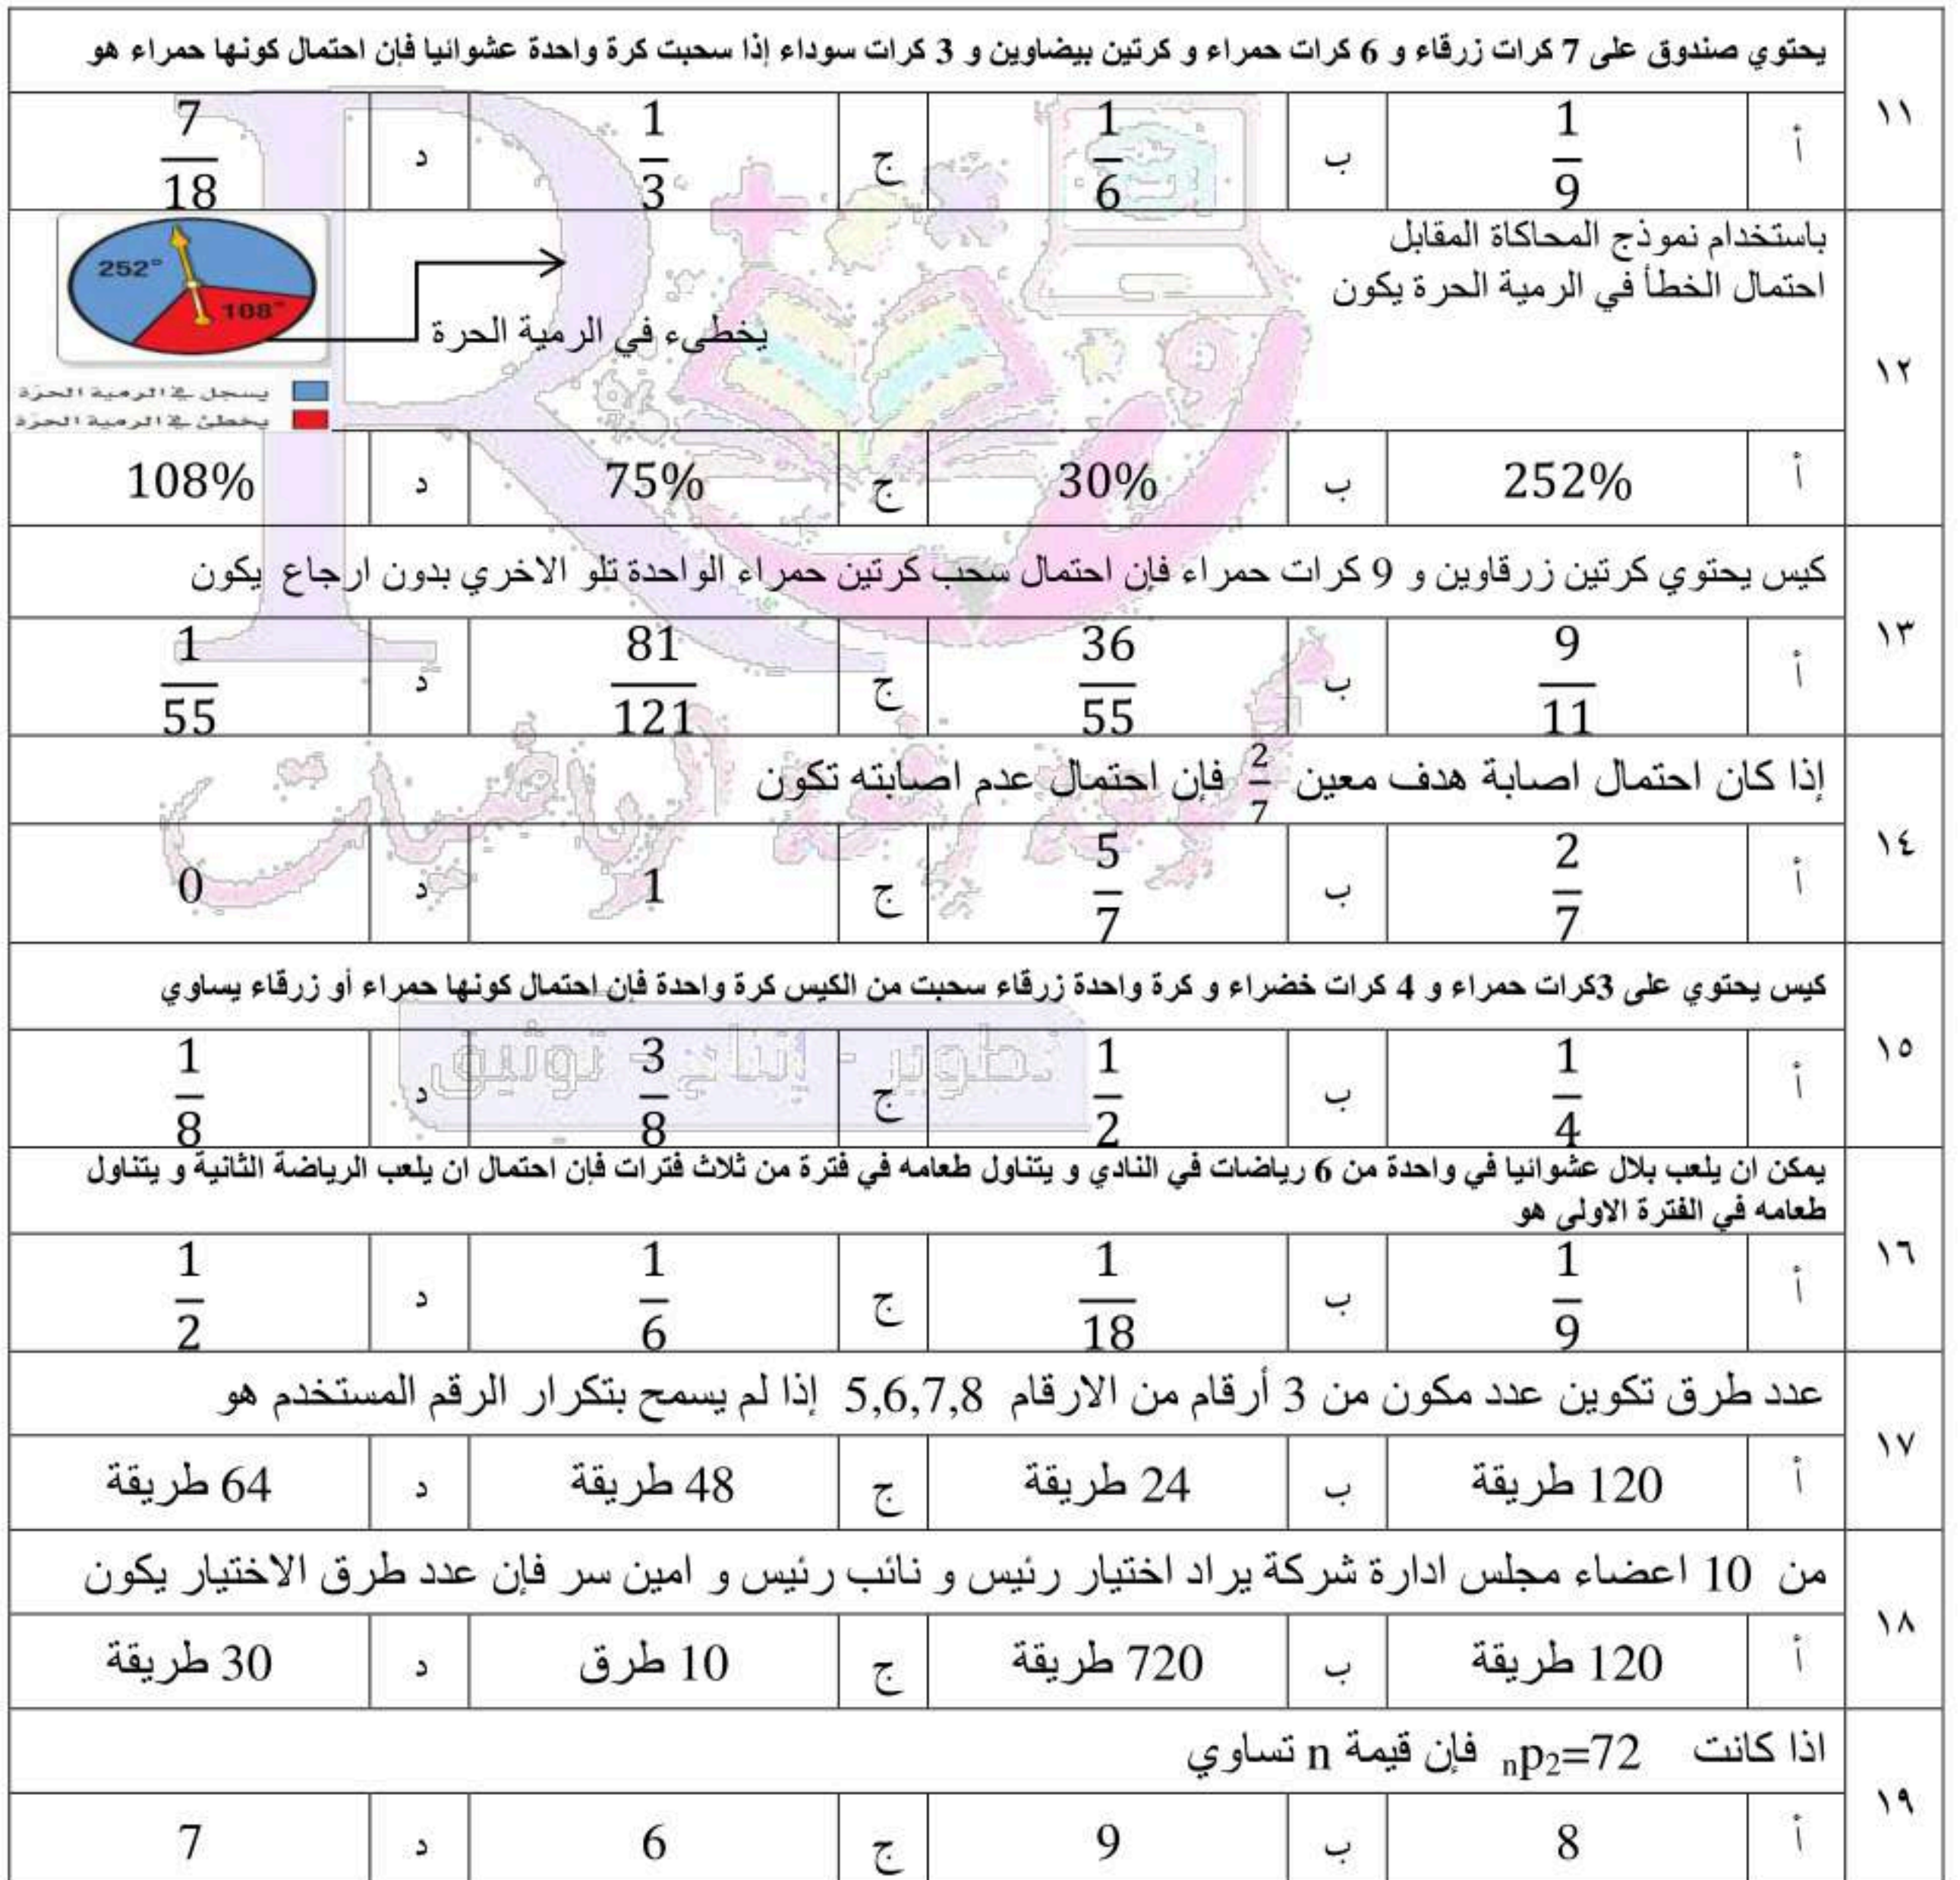 ١١
يحتوي صندوق على 7 كرات زرقاء و 6 كرات حمراء و كرتين بيضاوين و 3 كرات سوداء إذا سحبت كرة واحدة عشوائيا فإن احتمال كونها حمراء هو
أ 1/9 ب 1/6 ج 1/3 د 7/18
١٢
باستخدام نموذج المحاكاة المقابل
احتمال الخطأ في الرمية الحرة يكون
يخطىء في الرمية الحرة
252°
108°
يسجل في الرمية الحرّة
يخطئ في الرمية الحرّة
أ 252% ب 30% ج 75% د 108%
١٣
كيس يحتوي كرتين زرقاوين و 9 كرات حمراء فإن احتمال سحب كرتين حمراء الواحدة تلو الاخري بدون ارجاع يكون
أ 9/11 ب 36/55 ج 81/121 د 1/55
١٤
إذا كان احتمال اصابة هدف معين 2/7 فإن احتمال عدم اصابته تكون
أ 2/7 ب 5/7 ج 1 د 0
١٥
كيس يحتوي على 3كرات حمراء و 4 كرات خضراء و كرة واحدة زرقاء سحبت من الكيس كرة واحدة فإن احتمال كونها حمراء أو زرقاء يساوي
أ 1/4 ب 1/2 ج 3/8 د 1/8
١٦
يمكن ان يلعب بلال عشوائيا في واحدة من 6 رياضات في النادي و يتناول طعامه في فترة من ثلاث فترات فإن احتمال ان يلعب الرياضة الثانية و يتناول
طعامه في الفترة الاولي هو
أ 1/9 ب 1/18 ج 1/6 د 1/2
١٧
عدد طرق تكوين عدد مكون من 3 أرقام من الارقام 5,6,7,8 إذا لم يسمح بتكرار الرقم المستخدم هو
أ 120 طريقة ب 24 طريقة ج 48 طريقة د 64 طريقة
١٨
من 10 اعضاء مجلس ادارة شركة يراد اختيار رئيس و نائب رئيس و امين سر فإن عدد طرق الاختيار يكون
أ 120 طريقة ب 720 طريقة ج 10 طرق د 30 طريقة
١٩
اذا كانت ₙp₂=72 فإن قيمة n تساوي
أ 8 ب 9 ج 6 د 7
تطوير - إنتاج - توثيق